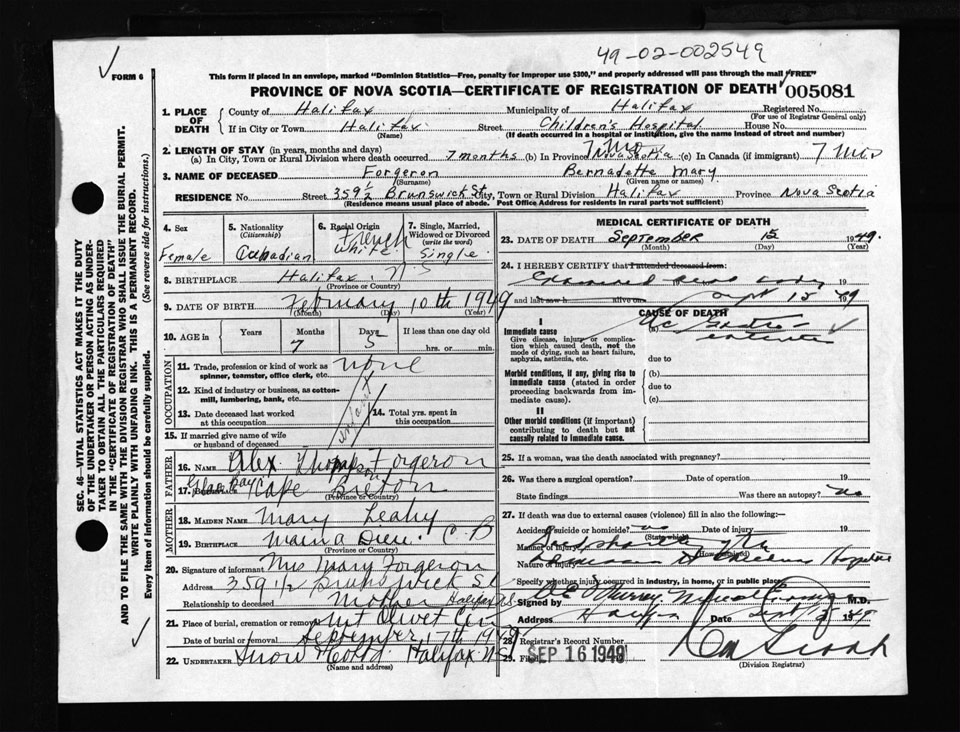 49-02-002549
FORM 6
This form if placed in an envelope, marked "Dominion Statistics—Free, penalty for improper use $300," and properly addressed will pass through the mail "FREE"
PROVINCE OF NOVA SCOTIA—CERTIFICATE OF REGISTRATION OF DEATH 005081
1. PLACE OF DEATH
County of Halifax Municipality of Halifax Registered No.
(For use of Registrar General only)
If in City or Town Halifax Street Children's Hospital House No.
(Name) (If death occurred in a hospital or institution, give the name instead of street and number)
2. LENGTH OF STAY (in years, months and days)
7 Mo
(a) In City, Town or Rural Division where death occurred 7 months (b) In Province Nova Scotia (c) In Canada (if immigrant) 7 Mos
3. NAME OF DECEASED Forgeron Bernadette Mary
(Surname) (Given name or names)
RESIDENCE No. Street 359½ Brunswick St, Town or Rural Division Halifax Province Nova Scotia
(Residence means usual place of abode. Post Office Address for residents in rural parts not sufficient)
4. Sex
Female
5. Nationality
(Citizenship)
Canadian
6. Racial Origin
French
White
7. Single, Married, Widowed or Divorced
(write the word)
Single
8. BIRTHPLACE Halifax, N.S
(Province or Country)
9. DATE OF BIRTH February 10th 1949
(Month) (Day) (Year)
10. AGE in Years Months Days If less than one day old
7 5 hrs. or min.
OCCUPATION
11. Trade, profession or kind of work as spinner, teamster, office clerk, etc. none
12. Kind of industry or business, as cotton-mill, lumbering, bank, etc.
13. Date deceased last worked at this occupation
14. Total yrs. spent in this occupation
infant
15. If married give name of wife or husband of deceased
FATHER
16. NAME Alex Thompson Forgeron
17. Birthplace Glace Bay Cape Breton
(Province or Country)
MOTHER
18. MAIDEN NAME Mary Leahy
19. BIRTHPLACE Main a Dieu, C.B
(Province or Country)
20. Signature of informant Mrs Mary Forgeron
Address 359 1/2 Brunswick St
Relationship to deceased Mother Halifax NS.
21. Place of burial, cremation or removal Mt Olivet Cem
Date of burial or removal September 17th 1949
22. UNDERTAKER Snow & Co Ltd Halifax N.S
(Name and address)
MEDICAL CERTIFICATE OF DEATH
23. DATE OF DEATH September 15 1949.
(Month) (Day) (Year)
24. I HEREBY CERTIFY that I attended deceased from:
Examined dead body 19
and last saw h alive on Sept 15 1949
CAUSE OF DEATH
I
Immediate cause
Give disease, injury or complication which caused death, not the mode of dying, such as heart failure, asphyxia, asthenia, etc.
Ac Gastro-
enteritis
due to
Morbid conditions, if any, giving rise to immediate cause (stated in order proceeding backwards from immediate cause).
(b)
due to
(c)
II
Other morbid conditions (if important) contributing to death but not causally related to immediate cause.
25. If a woman, was the death associated with pregnancy?
26. Was there a surgical operation? Date of operation 19
State findings Was there an autopsy? no
27. If death was due to external causes (violence) fill in also the following:
Accident, suicide or homicide? no Date of injury 19
(State which)
Manner of injury Died shortly after
(How sustained)
Nature of injury admission to Childrens Hospital
Specify whether injury occurred in industry, in home, or in public place
Signed by W E Murray Medical Examiner M.D.
Address Halifax Date Sept 1949
28. Registrar's Record Number
29. Filed SEP 16 1949
(Division Registrar)
SEC. 46—VITAL STATISTICS ACT MAKES IT THE DUTY OF THE UNDERTAKER OR PERSON ACTING AS UNDERTAKER TO OBTAIN ALL THE PARTICULARS REQUIRED IN THE "CERTIFICATE OF REGISTRATION OF DEATH" AND TO FILE THE SAME WITH THE DIVISION REGISTRAR WHO SHALL ISSUE THE BURIAL PERMIT.
WRITE PLAINLY WITH UNFADING INK. THIS IS A PERMANENT RECORD.
Every item of information should be carefully supplied. (See reverse side for instructions.)